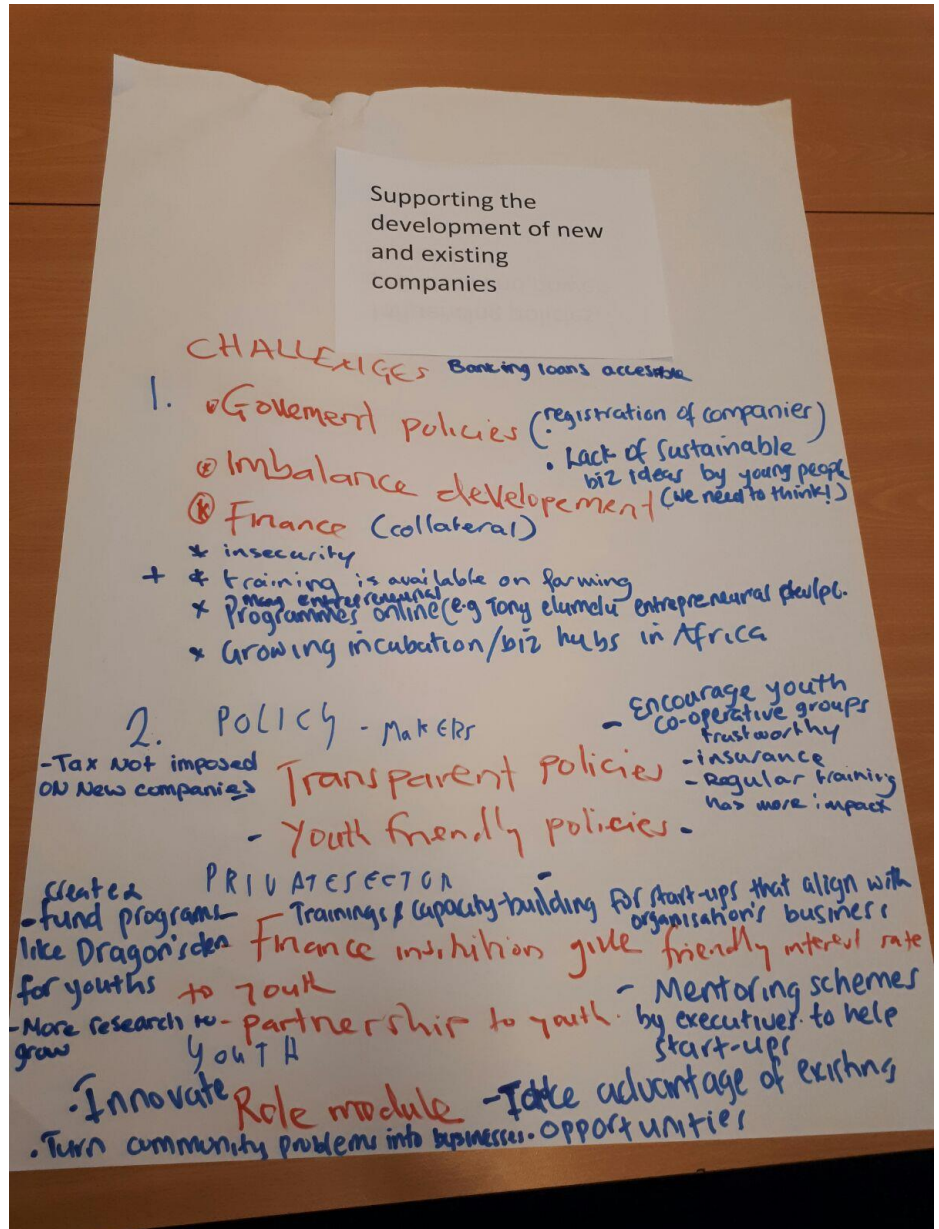 Supporting the
development of new
and existing
companies
CHALLENGES Banking loans accesible
1. Government policies (registration of companies)
• Lack of sustainable
biz ideas by young people
(we need to think!)
Imbalance developement
* Finance (collateral)
* insecurity
+ * training is available on farming
many entrepreneurial
* Programmes online (e.g Tony elumelu entrepreneurial devlpt.
* Growing incubation/biz hubs in Africa
2. POLICY - MakERs
- Encourage youth
co-operative groups
trustworthy
- Tax Not imposed
ON New companies
Transparent policies
- insurance
- Regular training
has more impact
- Youth friendly policies -
PRIVATE SECTOR
- Trainings & capacity-building for start-ups that align with
organisation's business
created
- fund programs
like Dragon's den
for youths
Finance institution give friendly interest rate
to youth
- More research to
grow
- partnership to youth.
- Mentoring schemes
by executives to help
start-ups
YOUTH
• Innovate
Role module
- Take advantage of existing
opportunities
• Turn community problems into businesses.